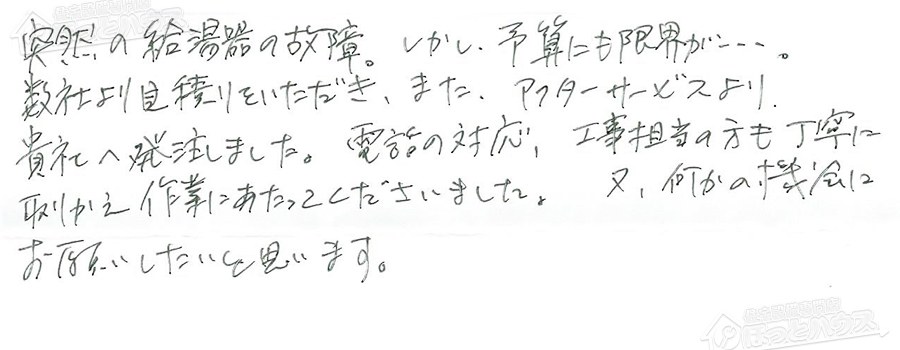 突然の給湯器の故障。しかし、予算にも限界が…。
数社より見積りをいただき、また、アフターサービスより、
貴社へ発注しました。電話の対応、工事担当の方も丁寧に
取りかえ作業にあたってくださいました。又、何かの機会に
お願いしたいと思います。
ほっとハウス